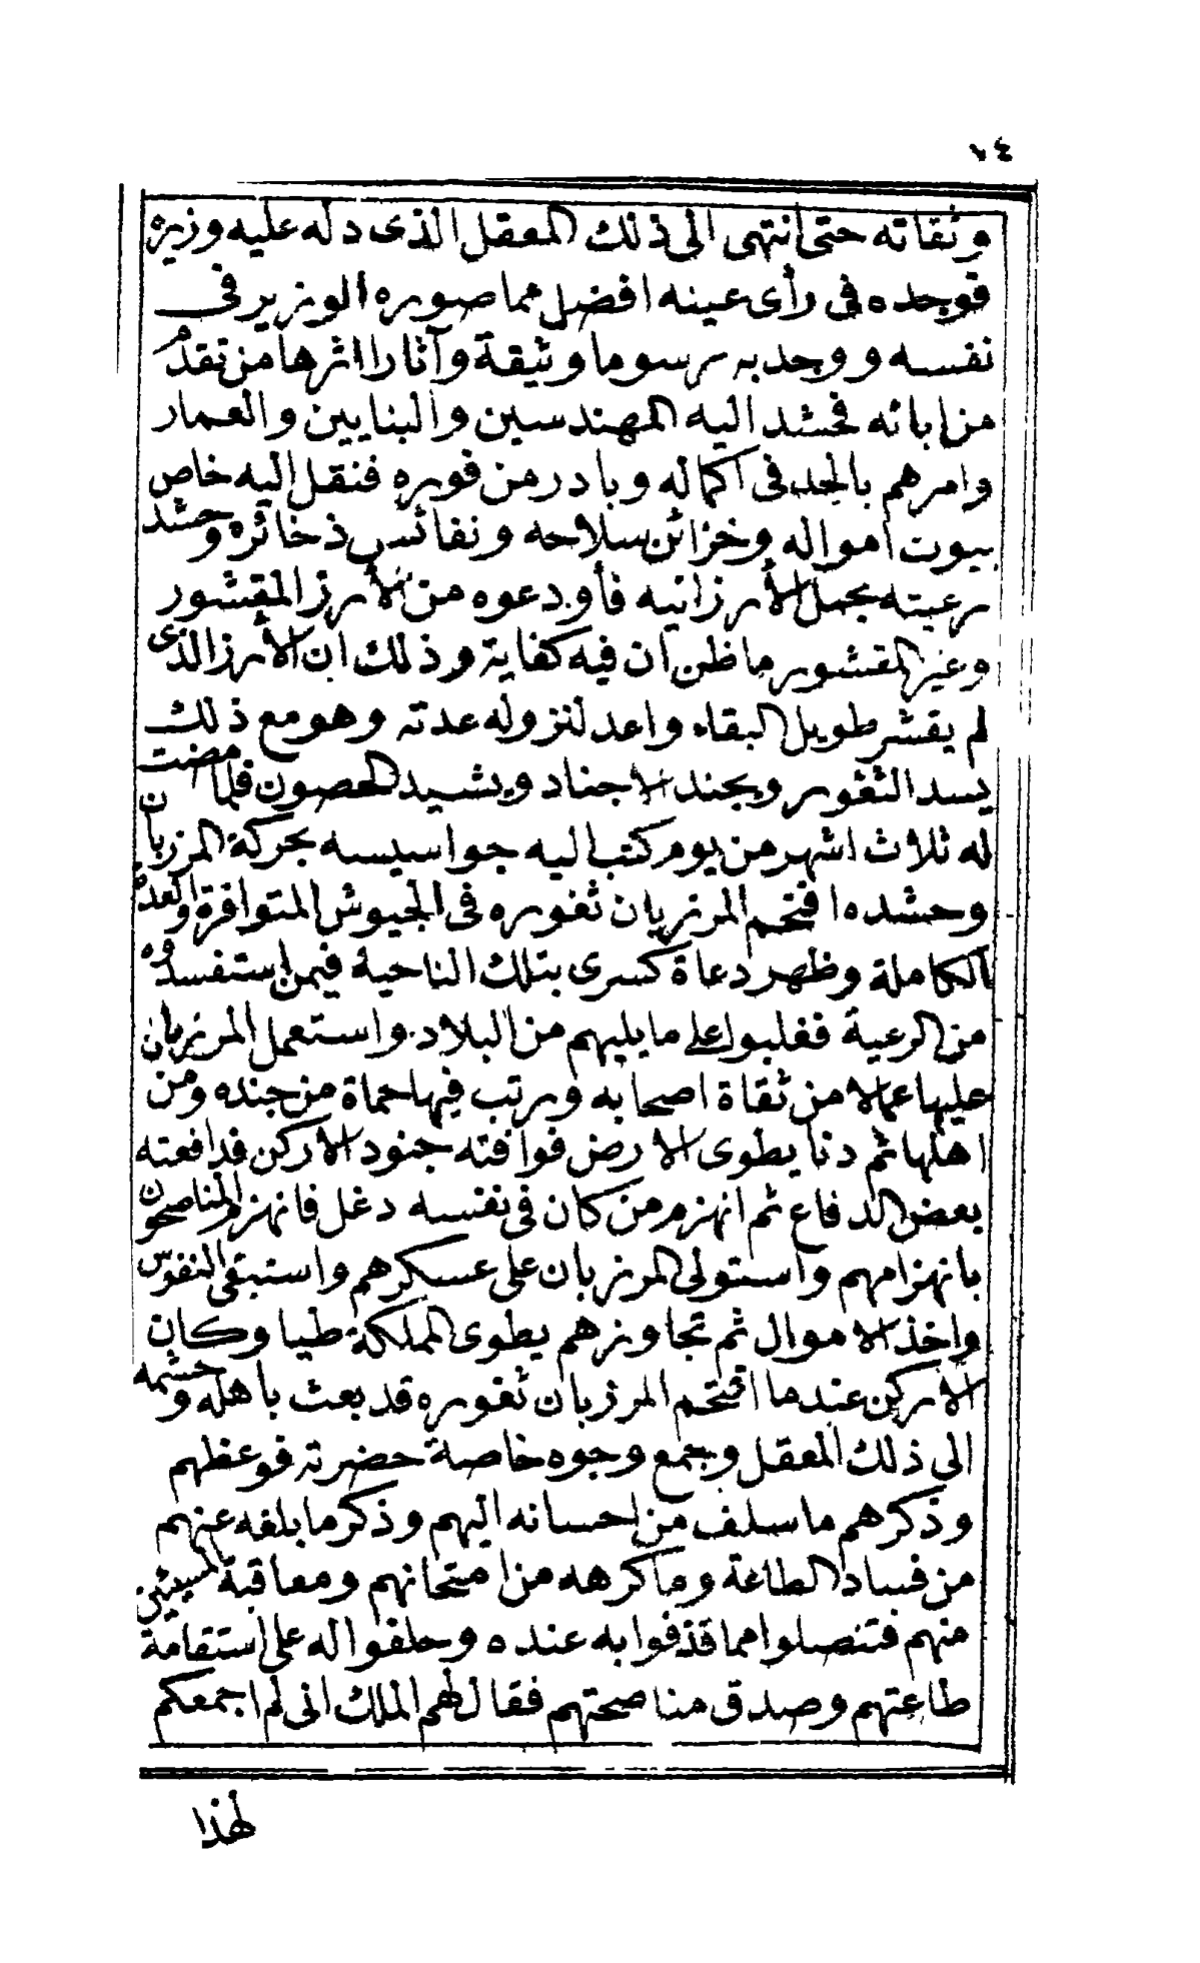 ٧٤
وثقاته حتى انتهى الى ذلك المعقل الذى دله عليه وزيره
فوجده فى رأى عينه افضل مما صوره الوزير فى
نفسه ووجد به رسوما وثيقة وآثارا اثرها من تقدم
من ابائه فحشد اليه المهندسين والبنايين والعمار
وامرهم بالجد فى اكماله وبادر من فوره فنقل اليه خاص
بيوت امواله وخزائن سلاحه ونفائس ذخائره وحشد
رعيته بحمل الأرز اليه فأودعوه من الأرز المقشور
وغير المقشور ما ظن ان فيه كفاية وذلك ان الأرز الذى
لم يقشر طويل البقاء واعد لنزوله عدته وهو مع ذلك
يسد الثغور ويجند الاجناد ويشيد الحصون فلما مضت
له ثلاث اشهر من يوم كتب اليه جواسيسه بحركة المرزبان
وحشده افتحم المرزبان ثغوره فى الجيوش المتوافرة والعدة
الكاملة وظهر دعاة كسرى بتلك الناحية فيمن استفسدوه
من الرعية فغلبوا على ما يليهم من البلاد. واستعمل المرزبان
عليها عمالا من ثقاة اصحابه ورتب فيها حماة من جنده ومن
اهلها ثم دنا يطوى الارض فوافته جنود الاركن فدافعته
بعض الدفاع ثم انهزم من كان فى نفسه دغل فانهزم المناصحون
بانهزامهم واستولى المرزبان على عسكرهم واستبقى النفوس
واخذ الاموال ثم تجاوزهم يطوى المملكة طيا وكان
الاركن عندما اقتحم المرزبان ثغوره قد بعث بأهله وحشمه
الى ذلك المعقل وجمع وجوه خاصة حضرته فوعظهم
وذكرهم ما سلف من احسانه اليهم وذكر ما بلغه عنهم
من فساد الطاعة وما كرهه من امتحانهم ومعاقبة المسيئين
منهم فتنصلوا مما قذفوا به عنده وحلفوا له على استقامة
طاعتهم وصدق مناصحتهم فقال لهم الملك انى لم اجمعكم
لهذا